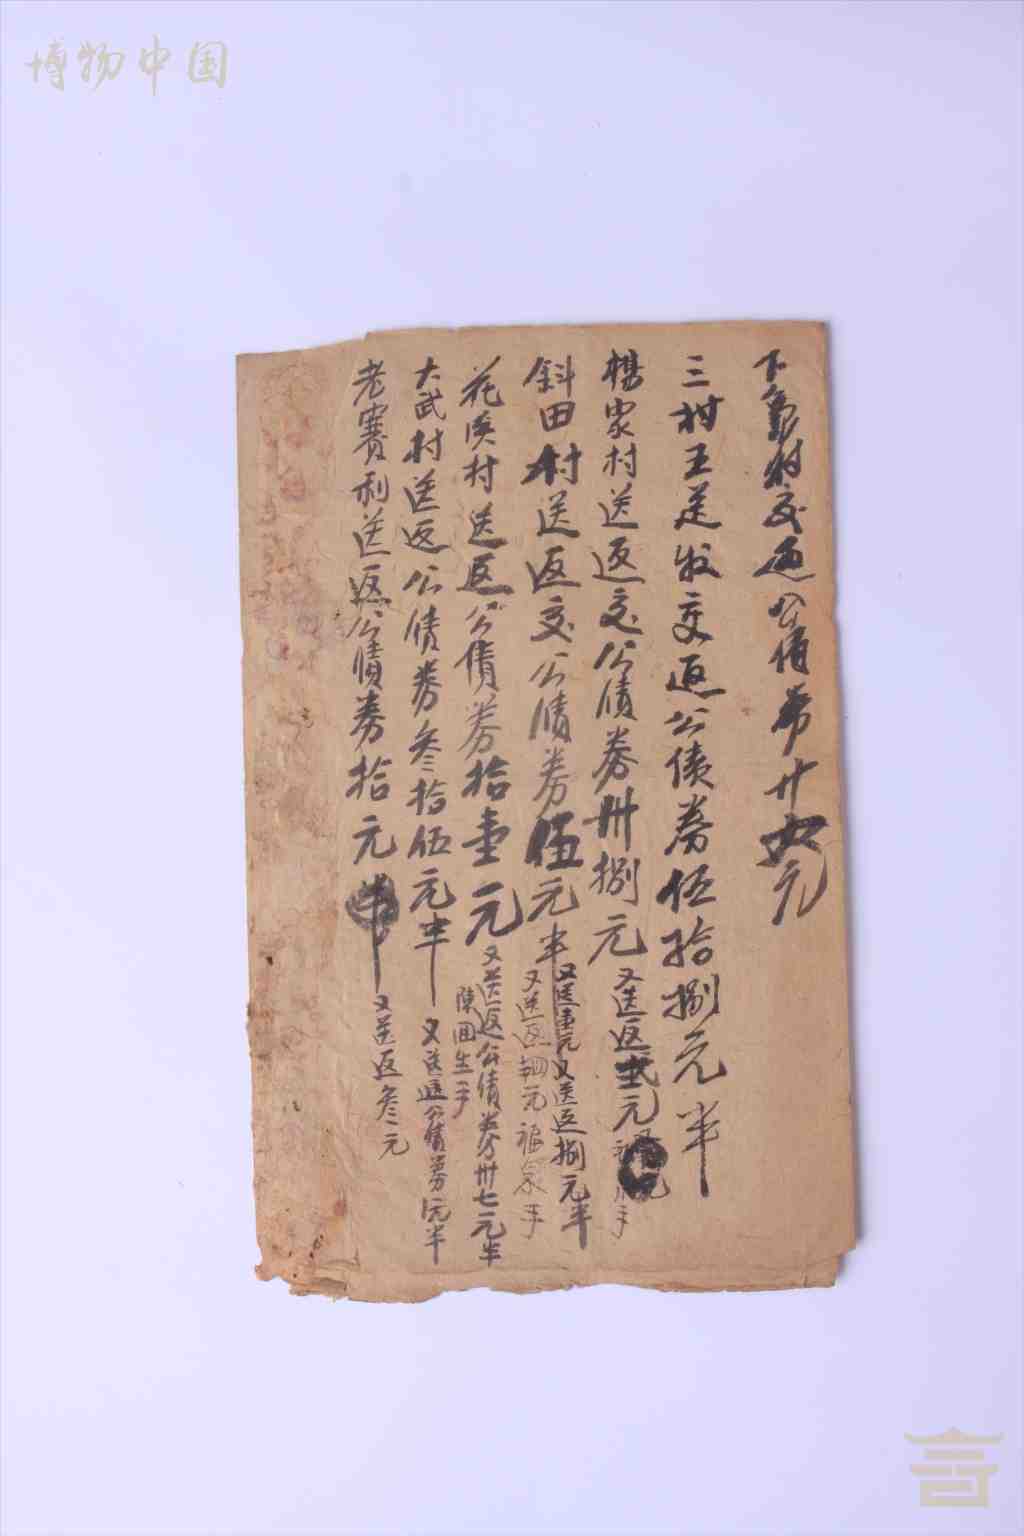 博物中国
下村交返公債券廿元
三村王足發交返公債券伍拾捌元半
楊家村送返交公債券卅捌元 又送返弍元 手
斜田村送返交公債券伍元半 又送壹元又送返捌元半
又送返元福象手
花溪村送返公債券拾壹元 又送返公債券卅七元半
陳囬生手
大武村送返公債券叁拾伍元半 又送返公債券元半
老賽利送返公債券拾元半 又送返叁元